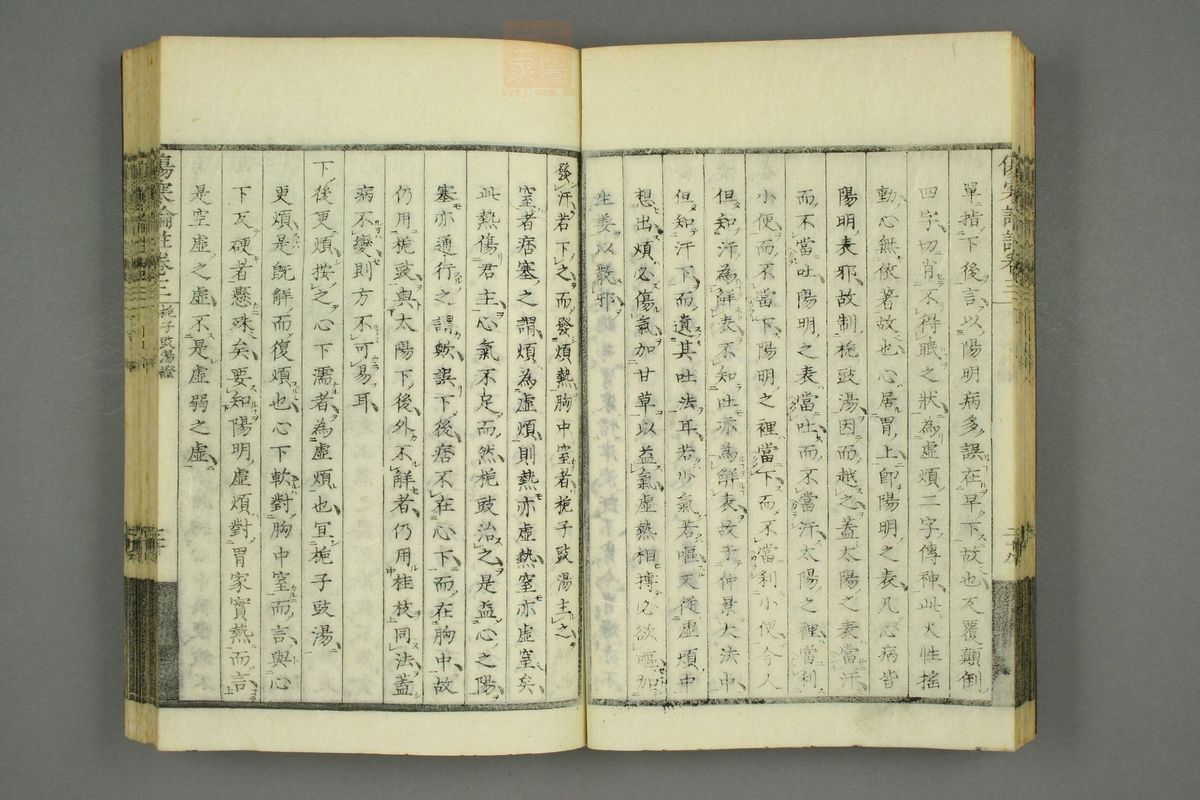 單指下後言以陽明病多誤在早下故也反覆顛倒
四字切肖不得眠之狀為虛煩二字傳神此火性搖
動心無依著故也心居胃上即陽明之表凡心病皆
陽明表邪故制梔豉湯因而越之蓋太陽之表當汗
而不當吐陽明之表當吐而不當汗太陽之裡當利
小便而不當下陽明之裡當下而不當利小便今人
但知汗為解表不知吐亦為解表故于仲景大法中
但知汗下而遺其吐法耳若少氣若嘔又從虛煩中
想出煩必傷氣加甘草以益氣虛熱相搏必欲嘔加
生姜以散邪
發汗若下之而發煩熱胸中窒者梔子豉湯主之
窒者痞塞之謂煩為虛煩則熱亦虛熱窒亦虛窒矣
此熱傷君主心氣不足而然梔豉治之是益心之陽
寒亦通行之謂歟誤下後痞不在心下而在胸中故
仍用梔豉與太陽下後外不解者仍用桂枝同法蓋
病不變則方不可易耳
下後更煩按之心下濡者為虛煩也宜梔子豉湯
更煩是既解而復煩也心下軟對胸中窒而言與心
下反硬者懸殊矣要知陽明虛煩對胃家實熱而言
是空虛之虛不是虛弱之虛
傷寒論註卷三 梔子豉湯證